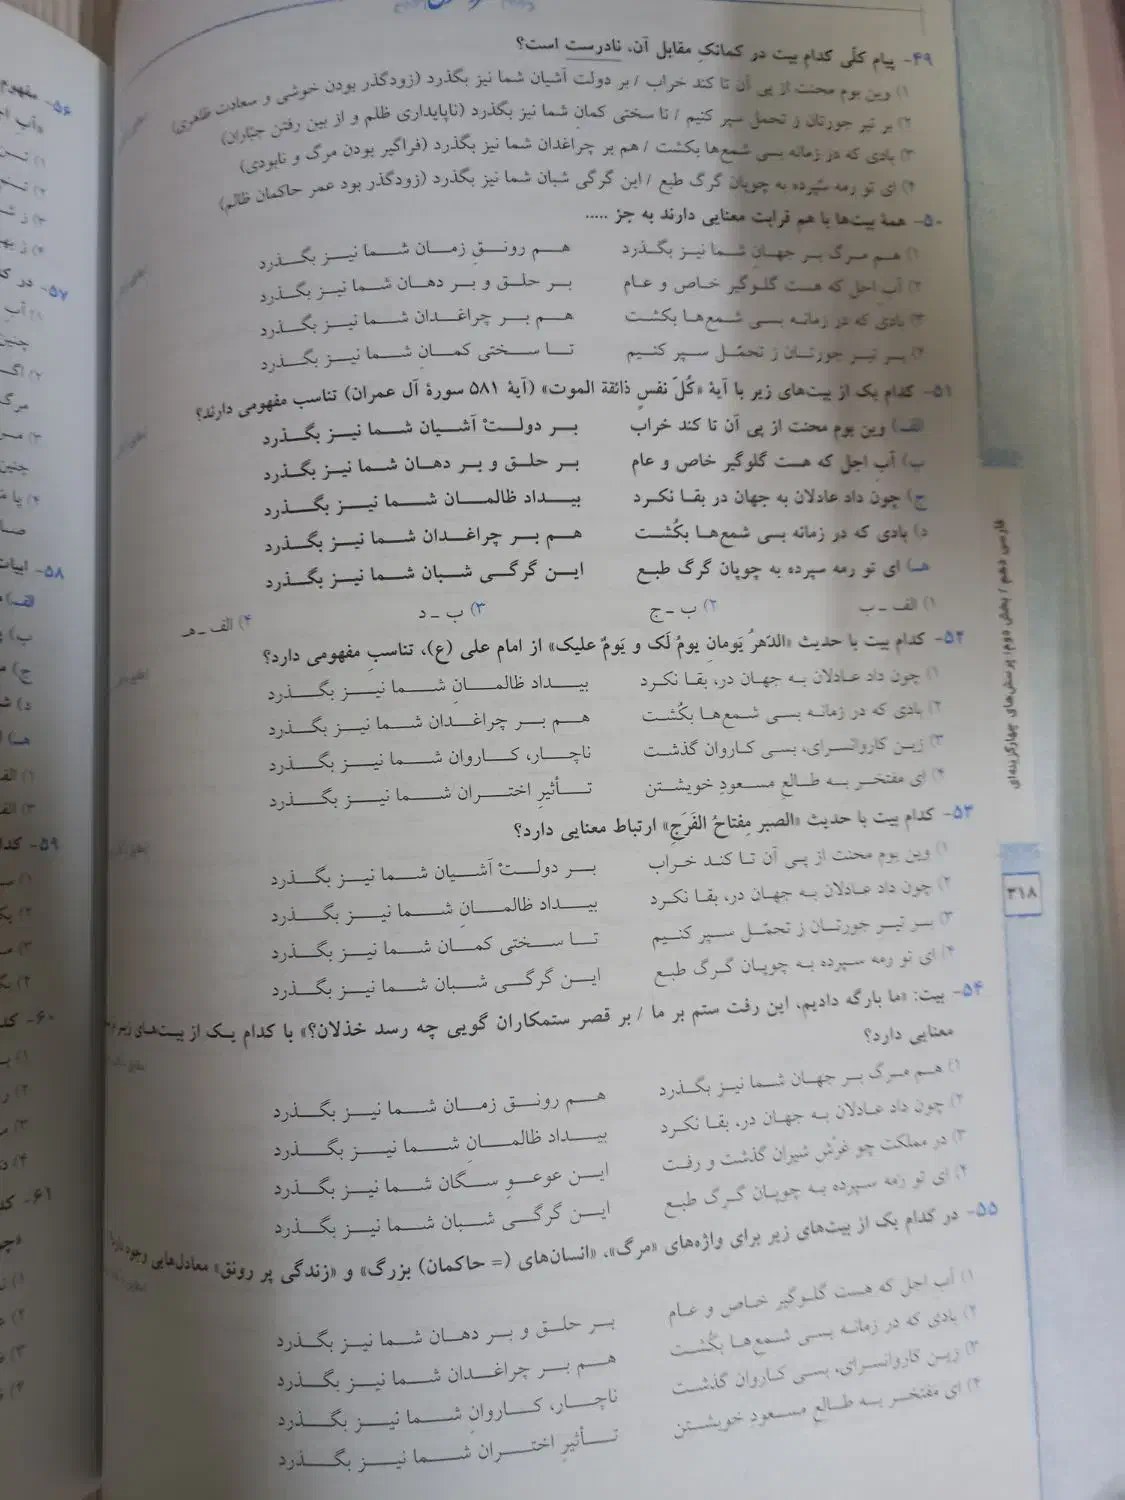 ۴۹- پیام کلّی کدام بیت در کمانکِ مقابل آن، نادرست است؟
۱) وین بوم محنت از پی آن تا کند خراب / بر دولت آشیان شما نیز بگذرد (زودگذر بودن خوشی و سعادت ظاهری)
۲) بر تیر جورتان ز تحمل سپر کنیم / تا سختی کمانِ شما نیز بگذرد (ناپایداری ظلم و از بین رفتن جبّاران)
۳) بادی که در زمانه بسی شمع‌ها بکشت / هم بر چراغدان شما نیز بگذرد (فراگیر بودن مرگ و نابودی)
۴) ای تو رمه سپرده به چوپان گرگ طبع / این گرگی شبان شما نیز بگذرد (زودگذر بود عمر حاکمان ظالم)
۵۰- همهٔ بیت‌ها با هم قرابت معنایی دارند به جز .....
۱) هم مرگ بر جهانِ شما نیز بگذرد هم رونقِ زمان شما نیز بگذرد
۲) آب اجل که هست گلوگیر خاص و عام بر حلق و بر دهان شما نیز بگذرد
۳) بادی که در زمانه بسی شمع‌ها بکشت هم بر چراغدان شما نیز بگذرد
۴) بر تیر جورتان ز تحمّل سپر کنیم تا سختی کمانِ شما نیز بگذرد
۵۱- کدام یک از بیت‌های زیر با آیهٔ «کُلّ نفسٍ ذائقة الموت» (آیهٔ ۵۸۱ سورهٔ آل عمران) تناسب مفهومی دارند؟
الف) وین بوم محنت از پی آن تا کند خراب بر دولتْ آشیان شما نیز بگذرد
ب) آبِ اجل که هست گلوگیر خاص و عام بر حلق و بر دهان شما نیز بگذرد
ج) چون داد عادلان به جهان در بقا نکرد بیداد ظالمان شما نیز بگذرد
د) بادی که در زمانه بسی شمع‌ها بکُشت هم بر چراغدان شما نیز بگذرد
هـ) ای تو رمه سپرده به چوپان گرگ طبع این گرگی شبان شما نیز بگذرد
۱) الف ـ ب ۲) ب ـ ج ۳) ب ـ د ۴) الف ـ هـ
۵۲- کدام بیت با حدیث «الدَهرُ یَومانِ یومٌ لَک و یَومٌ علیک» از امام علی (ع)، تناسبِ مفهومی دارد؟
۱) چون داد عادلان به جهان در، بقا نکرد بیداد ظالمانِ شما نیز بگذرد
۲) بادی که در زمانه بسی شمع‌ها بکُشت هم بر چراغدان شما نیز بگذرد
۳) زین کاروانسرای، بسی کاروان گذشت ناچار، کاروان شما نیز بگذرد
۴) ای مفتخر به طالع مسعودِ خویشتن تأثیرِ اختران شما نیز بگذرد
۵۳- کدام بیت با حدیث «الصبر مِفتاحُ الفَرَج» ارتباط معنایی دارد؟
۱) وین بوم محنت از پی آن تا کند خراب بر دولتْ آشیان شما نیز بگذرد
۲) چون داد عادلان به جهان در، بقا نکرد بیداد ظالمانِ شما نیز بگذرد
۳) بر تیر جورتان ز تحمّل سپر کنیم تا سختی کمان شما نیز بگذرد
۴) ای تو رمه سپرده به چوپان گرگ طبع این گرگی شبان شما نیز بگذرد
۵۴- بیت: «ما بارگه دادیم، این رفت ستم بر ما / بر قصر ستمکاران گویی چه رسد خذلان؟» با کدام یک از بیت‌های زیر
معنایی دارد؟
۱) هم مرگ بر جهان شما نیز بگذرد هم رونق زمان شما نیز بگذرد
۲) چون داد عادلان به جهان در، بقا نکرد بیداد ظالمانِ شما نیز بگذرد
۳) در مملکت چو غرّش شیران گذشت و رفت این عوعوِ سگان شما نیز بگذرد
۴) ای تو رمه سپرده به چوپان گرگ طبع این گرگی شبان شما نیز بگذرد
۵۵- در کدام یک از بیت‌های زیر برای واژه‌های «مرگ»، «انسان‌های (= حاکمان) بزرگ» و «زندگی پر رونق» معادل‌هایی وجود
۱) آب اجل که هست گلوگیر خاص و عام بر حلق و بر دهان شما نیز بگذرد
۲) بادی که در زمانه بسی شمع‌ها بکُشت هم بر چراغدان شما نیز بگذرد
۳) زین کاروانسرای، بسی کاروان گذشت ناچار، کاروانِ شما نیز بگذرد
۴) ای مفتخر به طالع مسعودِ خویشتن تأثیرِ اختران شما نیز بگذرد
فارسی دهم / بخش دوم: پرسش‌های چهارگزینه‌ای
۳۱۸
۵۶- مفهوم
۵۷- در
۵۸- ابیات
۵۹-
۶۰-
۶۱-